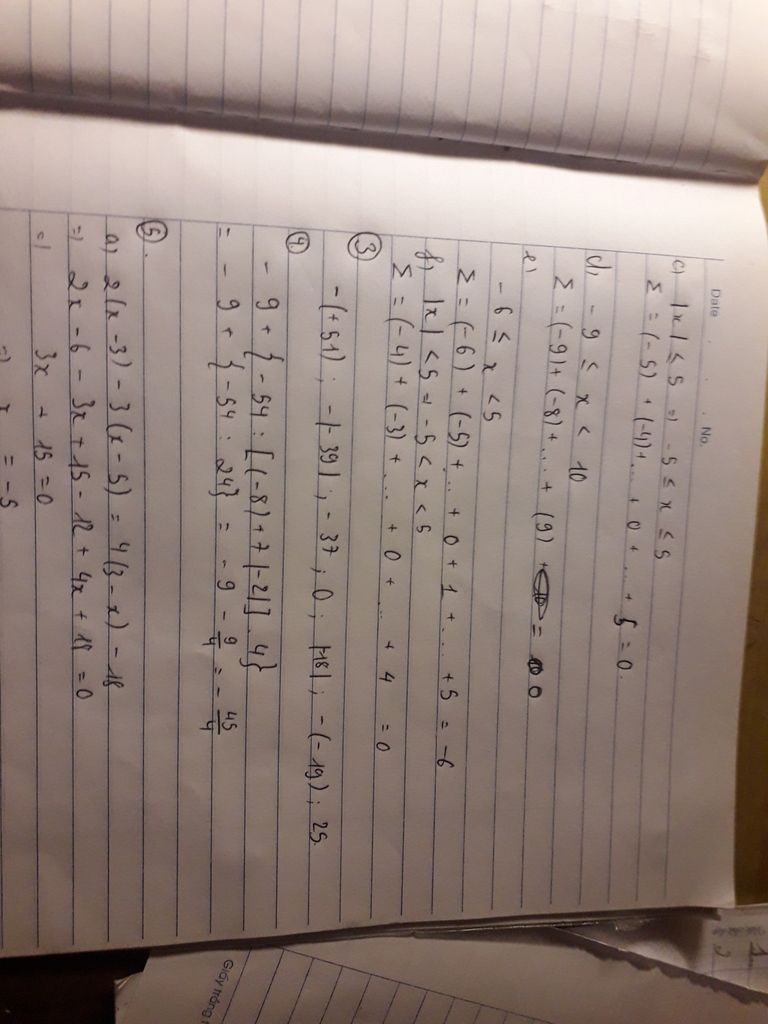 Date . . . No.
c) |x| ≤ 5 => -5 ≤ x ≤ 5
Σ = (-5) + (-4) + ... + 0 + ... + 5 = 0.
d) -9 ≤ x < 10
Σ = (-9) + (-8) + ... + (9) = 0
e)
-6 ≤ x < 5
Σ = (-6) + (-5) + ... + 0 + 1 + ... + 5 = -6
f) |x| < 5 => -5 < x < 5
Σ = (-4) + (-3) + ... + 0 + ... + 4 = 0
③
-(+51) ; -|-39| ; -37 ; 0 ; |18| ; -(-19) ; 25.
④
-9 + {-54 : [(-8) + 7 |-2|] . 4}
= -9 + {-54 : 24} = -9 - 9/4 = -45/4
⑤.
a) 2(x-3) - 3(x-5) = 4(3-x) - 18
=> 2x - 6 - 3x + 15 - 12 + 4x + 18 = 0
=> 3x + 15 = 0
=> x = -5
Giấy trắng